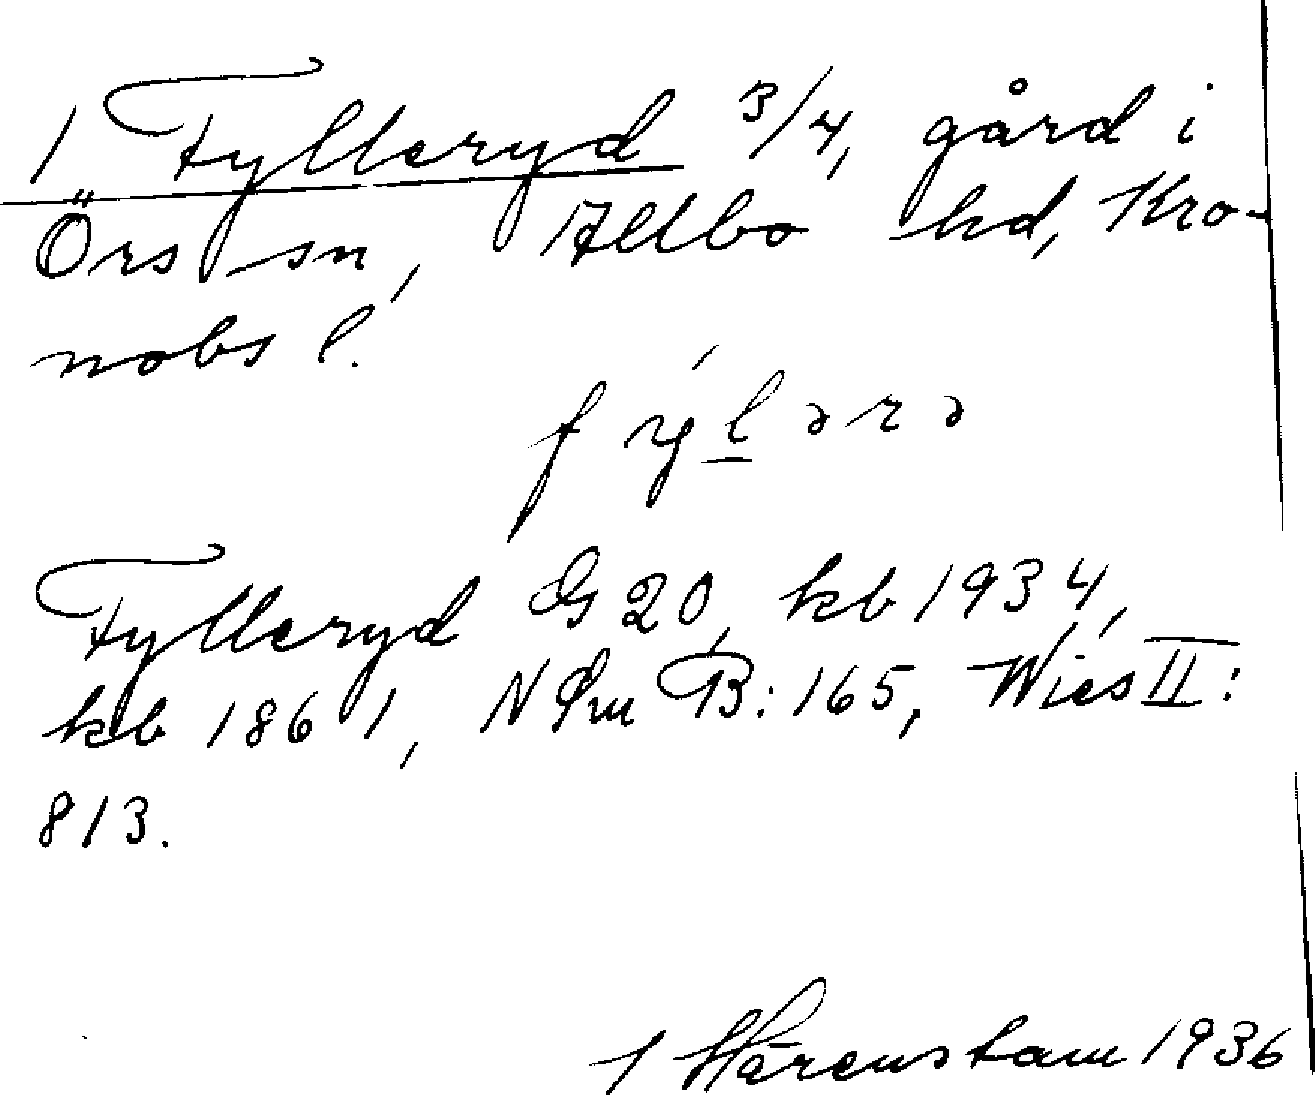 1 Fylleryd 3/4, gård i
Örs sn, Allbo hd, Kro-
nobs l.
fýl̲ərə
Fylleryd G 20, kb 1934,
kb 1861, NOm B: 165, Wies II:
813.
1 Hårenstam 1936